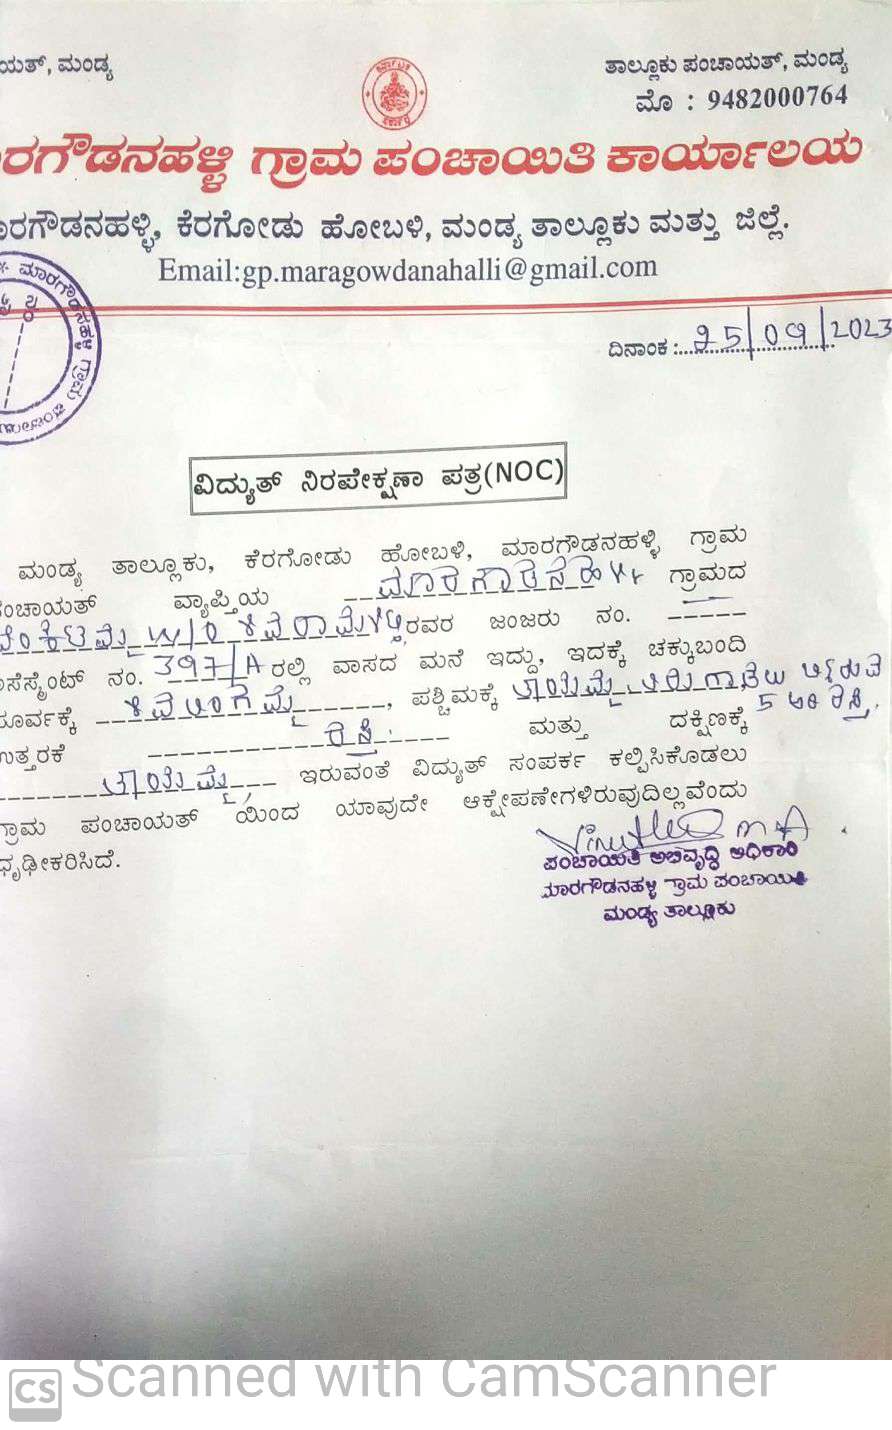 ಯತ್, ಮಂಡ್ಯ
ತಾಲ್ಲೂಕು ಪಂಚಾಯತ್, ಮಂಡ್ಯ
ಮೊ : 9482000764
ಾರಗೌಡನಹಳ್ಳಿ ಗ್ರಾಮ ಪಂಚಾಯಿತಿ ಕಾರ್ಯಾಲಯ
ಮಾರಗೌಡನಹಳ್ಳಿ, ಕೆರಗೋಡು ಹೋಬಳಿ, ಮಂಡ್ಯ ತಾಲ್ಲೂಕು ಮತ್ತು ಜಿಲ್ಲೆ.
Email:gp.maragowdanahalli@gmail.com
ಮಾರಗೌಡನಹಳ್ಳಿ ಗ್ರಾಮ
ದಿನಾಂಕ :25/09/2023
ವಿದ್ಯುತ್ ನಿರಪೇಕ್ಷಣಾ ಪತ್ರ(NOC)
ಮಂಡ್ಯ ತಾಲ್ಲೂಕು, ಕೆರಗೋಡು ಹೋಬಳಿ, ಮಾರಗೌಡನಹಳ್ಳಿ ಗ್ರಾಮ
ಪಂಚಾಯತ್ ವ್ಯಾಪ್ತಿಯ ಮಾರಗೌಡನಹಳ್ಳಿ ಗ್ರಾಮದ
W/O ರವರ ಜಂಜರು ನಂ. -----
ಅಸೆಸ್ಮೆಂಟ್ ನಂ. 397/A ರಲ್ಲಿ ವಾಸದ ಮನೆ ಇದ್ದು, ಇದಕ್ಕೆ ಚಕ್ಕುಬಂದಿ
ಪೂರ್ವಕ್ಕೆ ಶಿವಲಿಂಗಮ್ಮ, ಪಶ್ಚಿಮಕ್ಕೆ ತಾಯಮ್ಮ
5 ಅಡಿ ರಸ್ತೆ.
ಉತ್ತರಕೆ ರಸ್ತೆ ಮತ್ತು ದಕ್ಷಿಣಕ್ಕೆ
ತಾಯಮ್ಮ, ಇರುವಂತೆ ವಿದ್ಯುತ್ ಸಂಪರ್ಕ ಕಲ್ಪಿಸಿಕೊಡಲು
ಗ್ರಾಮ ಪಂಚಾಯತ್ ಯಿಂದ ಯಾವುದೇ ಆಕ್ಷೇಪಣೇಗಳಿರುವುದಿಲ್ಲವೆಂದು
ಧೃಢೀಕರಿಸಿದೆ.
ಪಂಚಾಯಿತಿ ಅಭಿವೃದ್ಧಿ ಅಧಿಕಾರಿ
ಮಾರಗೌಡನಹಳ್ಳಿ ಗ್ರಾಮ ಪಂಚಾಯಿತಿ
ಮಂಡ್ಯ ತಾಲ್ಲೂಕು
CS Scanned with CamScanner